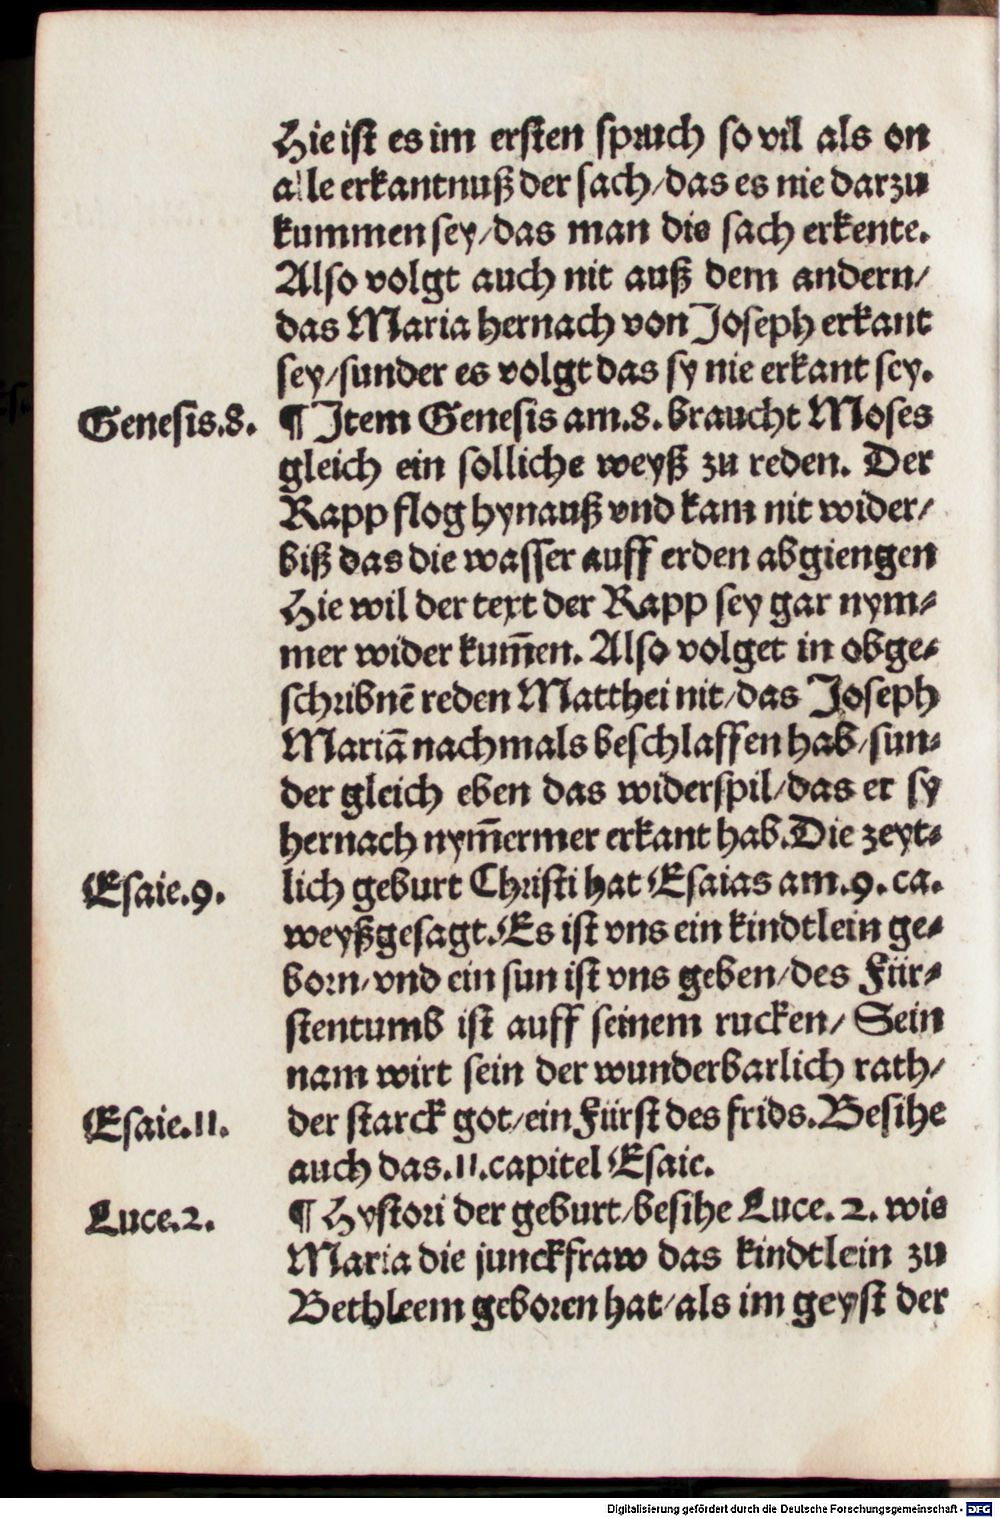 Hie ist es im ersten spruch so vil als on
alle erkantnuß der sach/das es nie darzu
kummen sey/das man die sach erkente.
Also volgt auch nit auß dem andern/
das Maria hernach von Joseph erkant
sey/sunder es volgt das sy nie erkant sey.
Genesis.8. ¶ Item Genesis am.8. braucht Moses
gleich ein solliche weyß zu reden. Der
Rapp flog hynauß vnd kam nit wider/
biß das die wasser auff erden abgiengen
Hie wil der text der Rapp sey gar nym⸗
mer wider kum̅en. Also volget in obge⸗
schribnē reden Matthei nit/das Joseph
Mariā nachmals beschlaffen hab/sun⸗
der gleich eben das widerspil/das er sy
hernach nym̅ermer erkant hab. Die zeyt⸗
Esaie.9. lich geburt Christi hat Esaias am.9.ca.
weyßgesagt. Es ist vns ein kindtlein ge⸗
born/vnd ein sun ist vns geben/des Für⸗
stentumb ist auff seinem rucken/ Sein
nam wirt sein der wunderbarlich rath/
Esaie.11. der starck got/ein Fürst des frids. Besihe
auch das.11.capitel Esaie.
Luce.2. ¶ Hystori der geburt/besihe Luce. 2. wie
Maria die junckfraw das kindtlein zu
Bethleem geboren hat/als im geyst der
Digitalisierung gefördert durch die Deutsche Forschungsgemeinschaft - DFG